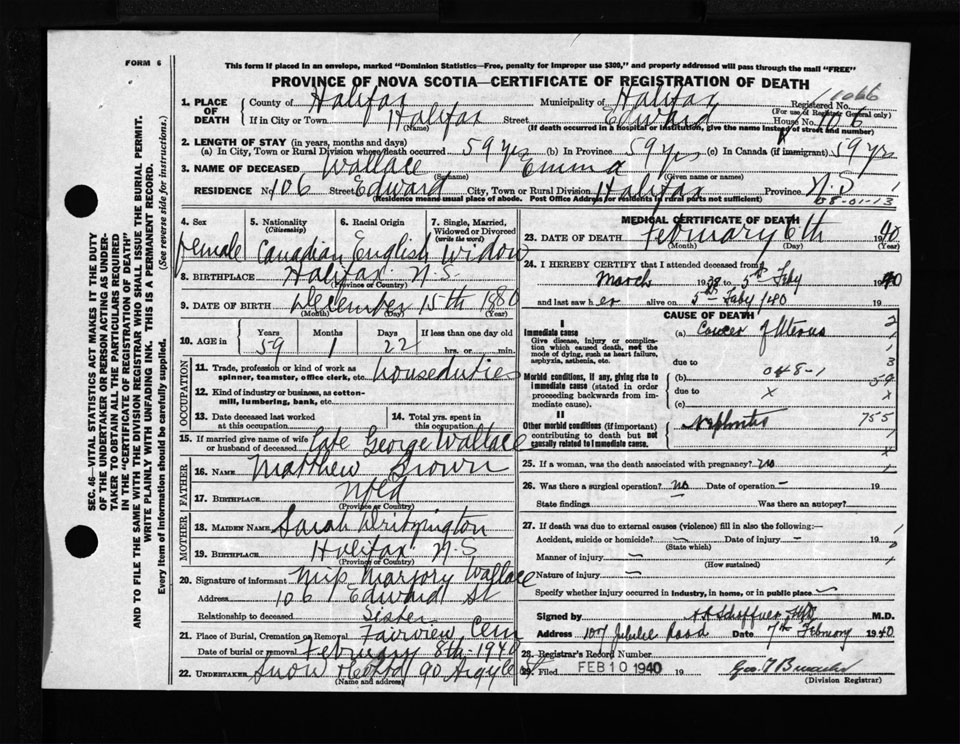 FORM 6
This form if placed in an envelope, marked "Dominion Statistics—Free, penalty for improper use $300," and properly addressed will pass through the mail "FREE"
PROVINCE OF NOVA SCOTIA—CERTIFICATE OF REGISTRATION OF DEATH
1. PLACE OF DEATH
County of Halifax Municipality of Halifax Registered No.
(For use of Registrar General only)
If in City or Town Halifax Street Edward House No. 106
(Name) (If death occurred in a hospital or institution, give the name instead of street and number)
2. LENGTH OF STAY (in years, months and days)
(a) In City, Town or Rural Division where death occurred 59 yrs (b) In Province 59 yrs (c) In Canada (if immigrant) 59 yrs
3. NAME OF DECEASED Wallace Emma
(Surname) (Given name or names)
RESIDENCE No 106 Street Edward City, Town or Rural Division Halifax Province N.S 1
(Residence means usual place of abode. Post Office Address for residents in rural parts not sufficient) 08-01-13
4. Sex 5. Nationality 6. Racial Origin 7. Single, Married, Widowed or Divorced
(Citizenship) (write the word)
female Canadian English Widow
8. BIRTHPLACE Halifax N.S.
(Province or Country)
9. DATE OF BIRTH December 15th 1880
(Month) (Day) (Year)
10. AGE in Years Months Days If less than one day old
59 1 22 hrs. or min.
OCCUPATION
11. Trade, profession or kind of work as spinner, teamster, office clerk, etc. housduties
12. Kind of industry or business, as cotton-mill, lumbering, bank, etc.
13. Date deceased last worked at this occupation
14. Total yrs. spent in this occupation
15. If married give name of wife or husband of deceased Late George Wallace
FATHER
16. NAME Matthew Brown
17. BIRTHPLACE Nfld
(Province or Country)
MOTHER
18. MAIDEN NAME Sarah
19. BIRTHPLACE Halifax N.S
(Province or Country)
20. Signature of informant Miss Marjory Wallace
Address 106 Edward St
Relationship to deceased Sister
21. Place of Burial, Cremation or Removal Fairview Cem
Date of burial or removal February 8th 1940
22. UNDERTAKER Snow 90 Argyle St
(Name and address)
MEDICAL CERTIFICATE OF DEATH
23. DATE OF DEATH February 6th 1940
(Month) (Day) (Year)
24. I HEREBY CERTIFY that I attended deceased from
March 1938 to 5th Feby 1940
and last saw her alive on 5th Feby 1940 19
CAUSE OF DEATH
I
Immediate cause
Give disease, injury or complication which caused death, not the mode of dying, such as heart failure, asphyxia, asthenia, etc.
(a) Cancer of Uterus 2
1
due to 3
Morbid conditions, if any, giving rise to immediate cause (stated in order proceeding backwards from immediate cause).
(b) 048-1 59
due to x x
(c)
II
Other morbid conditions (if important) contributing to death but not causally related to immediate cause.
Nephritis 755
1
x
25. If a woman, was the death associated with pregnancy? no 1
26. Was there a surgical operation? no Date of operation - 19
State findings Was there an autopsy?
27. If death was due to external causes (violence) fill in also the following:—
Accident, suicide or homicide? ~ Date of injury - 19
(State which)
Manner of injury ~
(How sustained)
Nature of injury ~
Specify whether injury occurred in industry, in home, or in public place ~
Signed by M.D.
Address 107 Jubilee Road Date 7th February 1940
28. Registrar's Record Number
29. Filed FEB 10 1940 19
(Division Registrar)
SEC. 46—VITAL STATISTICS ACT MAKES IT THE DUTY
OF THE UNDERTAKER OR PERSON ACTING AS UNDER-
TAKER TO OBTAIN ALL THE PARTICULARS REQUIRED
IN THE "CERTIFICATE OF REGISTRATION OF DEATH"
AND TO FILE THE SAME WITH THE DIVISION REGISTRAR WHO SHALL ISSUE THE BURIAL PERMIT.
WRITE PLAINLY WITH UNFADING INK. THIS IS A PERMANENT RECORD.
Every item of information should be carefully supplied. (See reverse side for instructions.)